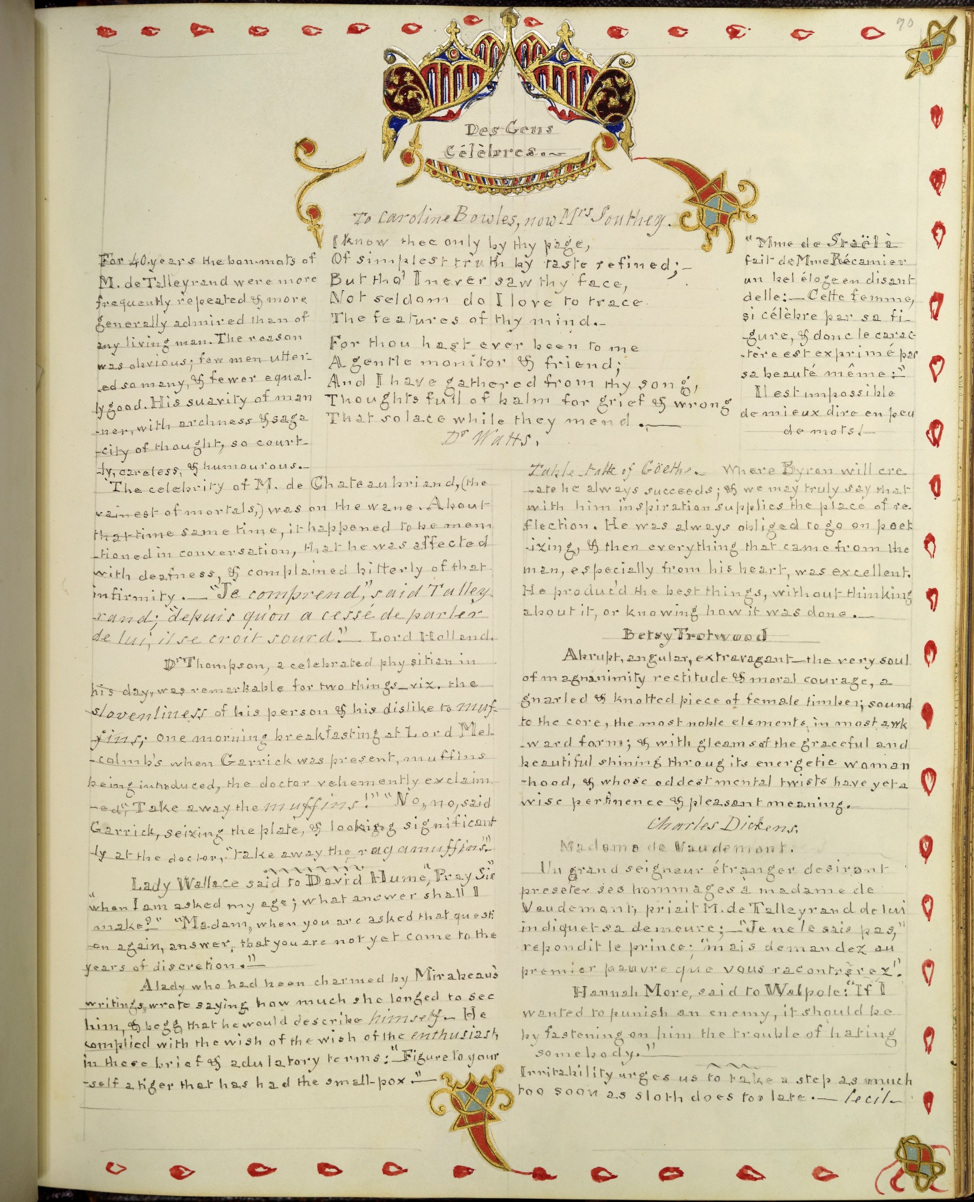 90
Des Gens
Célèbres.~
To Caroline Bowles, now Mrs Southey.
I know thee only by thy page,
Of simplest truth by taste refined;-
But tho' I never saw thy face,
Not seldom do I love to trace
The features of thy mind.-
For thou hast ever been to me
A gentle monitor & friend;
And I have gathered from thy song,
Thoughts full of balm for grief & wrong
That solace while they mend.-
Dr Watts.
For 40 years the bon-mots of
M. de Talleyrand were more
frequently repeated & more
generally admired than of
any living man. The reason
was obvious; few men utter-
-ed so many, & fewer equal-
ly good. His suavity of man
-ner, with archness & saga
-city of thought, so court-
-ly, careless, & humourous.-
"Mme de Staël à
fait de Mme Récamier
un bel éloge en disant
d'elle:- Cette femme,
si célèbre par sa fi-
gure, & donc le carac-
-tère est exprimé par
sa beauté même:"
Il est impossible
de mieux dire en peu
de mots!-
The celebrity of M. de Chateaubriand, (the
vainest of mortals,) was on the wane. About
that time same time, it happened to be men
-tioned in conversation, that he was affected
with deafness, & complained bitterly of that
infirmity.- "Je comprend," said Talley.
rand; "depuis qu'on a cessé de parler
de lui, il se croit sourd." Lord Holland.
Dr Thompson, a celebrated physitian in
his day, was remarkable for two things-viz. the
slovenliness of his person & his dislike to muf-
fins; one morning breakfasting at Lord Mel
-colmb's when Garrick was present, muffins
being introduced, the doctor vehemently exclaim
-ed; Take away the muffins!" "No, no, said
Garrick, seizing the plate, & looking significant
-ly at the doctor, "take away the ragamuffins."
Lady Wallace said to David Hume, "Pray Sir
"when I am asked my age; what answer shall I
make?" "Madam, when you are asked that questi
-on again, answer, that you are not yet come to the
years of discretion."-
A lady who had been charmed by Mirabeau's
writings, wrote saying how much she longed to see
him, & begg that he would describe himself.- He
complied with the wish of the wish of the enthusiast
in these brief & adulatory terms: "Figure to your
-self a tiger that has had the small-pox."-
Table-talk of Goethe.- Where Byron will cre
-ate he always succeeds; & we may truly say that
with him inspiration supplies the place of re
flection. He was always obliged to go on poet
izing, & then everything that came from the
man, especially from his heart, was excellent.
He produc'd the best things, without thinking
about it, or knowing how it was done.-
Betsy Trotwood
Abrupt, angular, extravagant-the very soul
of magnanimity rectitude & moral courage, a
gnarled & knotted piece of female timber; sound
to the core, the most noble elements, in most awk
-ward forms; & with gleams of the graceful and
beautiful shining throug its energetic woman
-hood, & whose oddest mental twists have yet a
wise pertinence & pleasant meaning.
Charles Dickens.
Madame de Vaudemont.
Un grand seigneur étranger desirant
preseter ses hommages à madame de
Vaudemont, priait M. de Talleyrand de lui
indiquet sa demeure;- "Je ne le sais pas,"
repondit le prince; "mais demandez au
premier pauvre que vous racontrerez".
Hannah More, said to Walpole: "If I
wanted to punish an enemy, it should be
by fastening on him the trouble of hating
somebody."
Irritability urges us to take a step as much
too soon as sloth does too late.- Cecil-